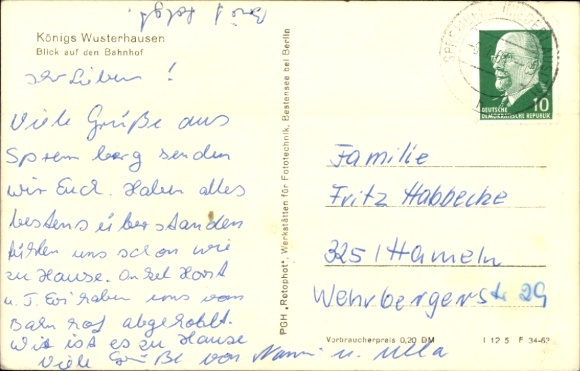 Königs Wusterhausen
Blick auf den Bahnhof
Ihr Lieben!
Viele Grüße aus
Spremberg senden
wir Euch. Haben alles
bestens überstanden
fühlen uns schon wie
zu Hause. Onkel Horst
u. T. Evi haben uns vom
Bahnhof abgehohlt.
Wie ist es zu Hause
Viele Grüße von Nanni u. Ulla
Brief folgt.
PGH „Retophot“, Werkstätten für Fototechnik, Bestensee bei Berlin
SPREMBERG
10
DEUTSCHE
DEMOKRATISCHE REPUBLIK
Familie
Fritz Habbecke
3251 Hameln
Wehrbergerstr 29
Verbraucherpreis 0,20 DM
I 12 5 F 34-63